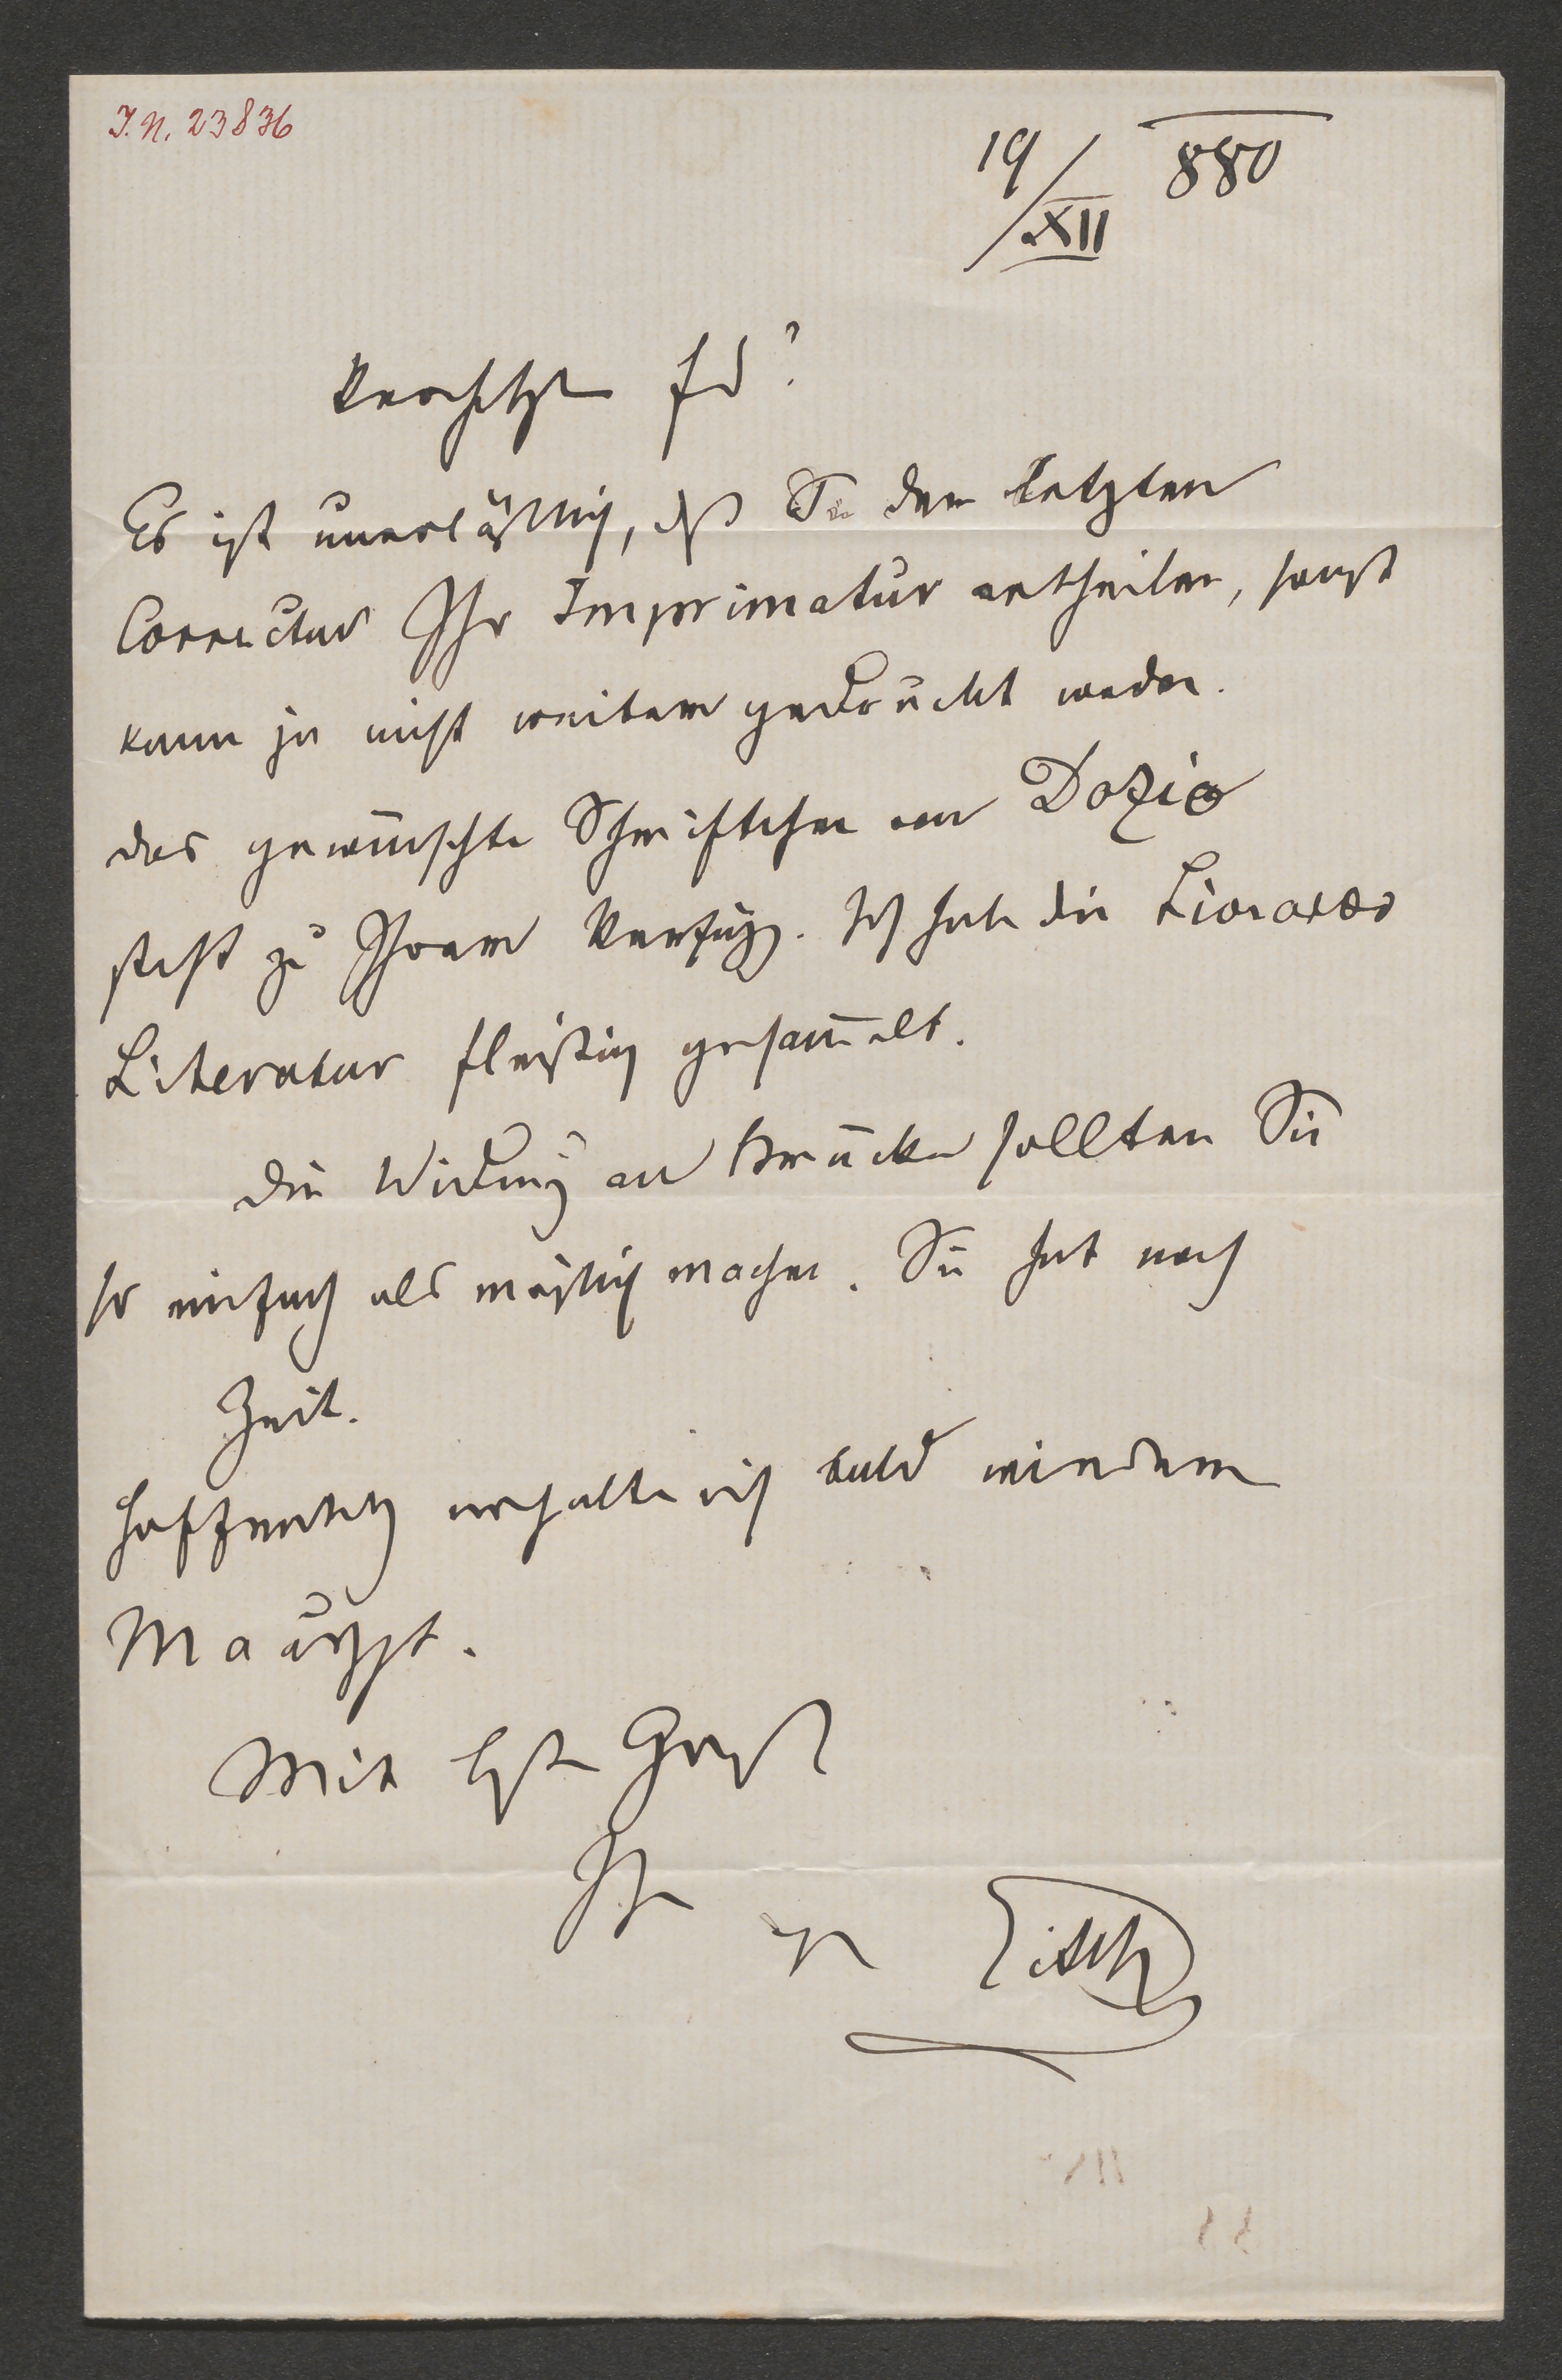 I. N. 23836
19/XII 880
Verehrter Fd!
Es ist unerläßlich, dß Sie der letzten
Correctur Ihr Imprimatur ertheilen, sonst
kann ja nicht weiter gedruckt werden.
Das gewünschte Schriftchen von Dozio
steht zu Ihrer Verfügg. Ich habe die Lionardo
Literatur fleißig gesam̄elt.
Die Widmung an Brücke sollten Sie
so einfach als möglich machen. Sie hat noch
Zeit.
Hoffentlich erhalte ich bald wieder
Mauscpt.
Mit Gruß
Ihr